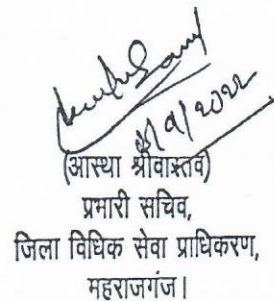 /9/2022
(आस्था श्रीवास्तव)
प्रभारी सचिव,
जिला विधिक सेवा प्राधिकरण,
महराजगंज।